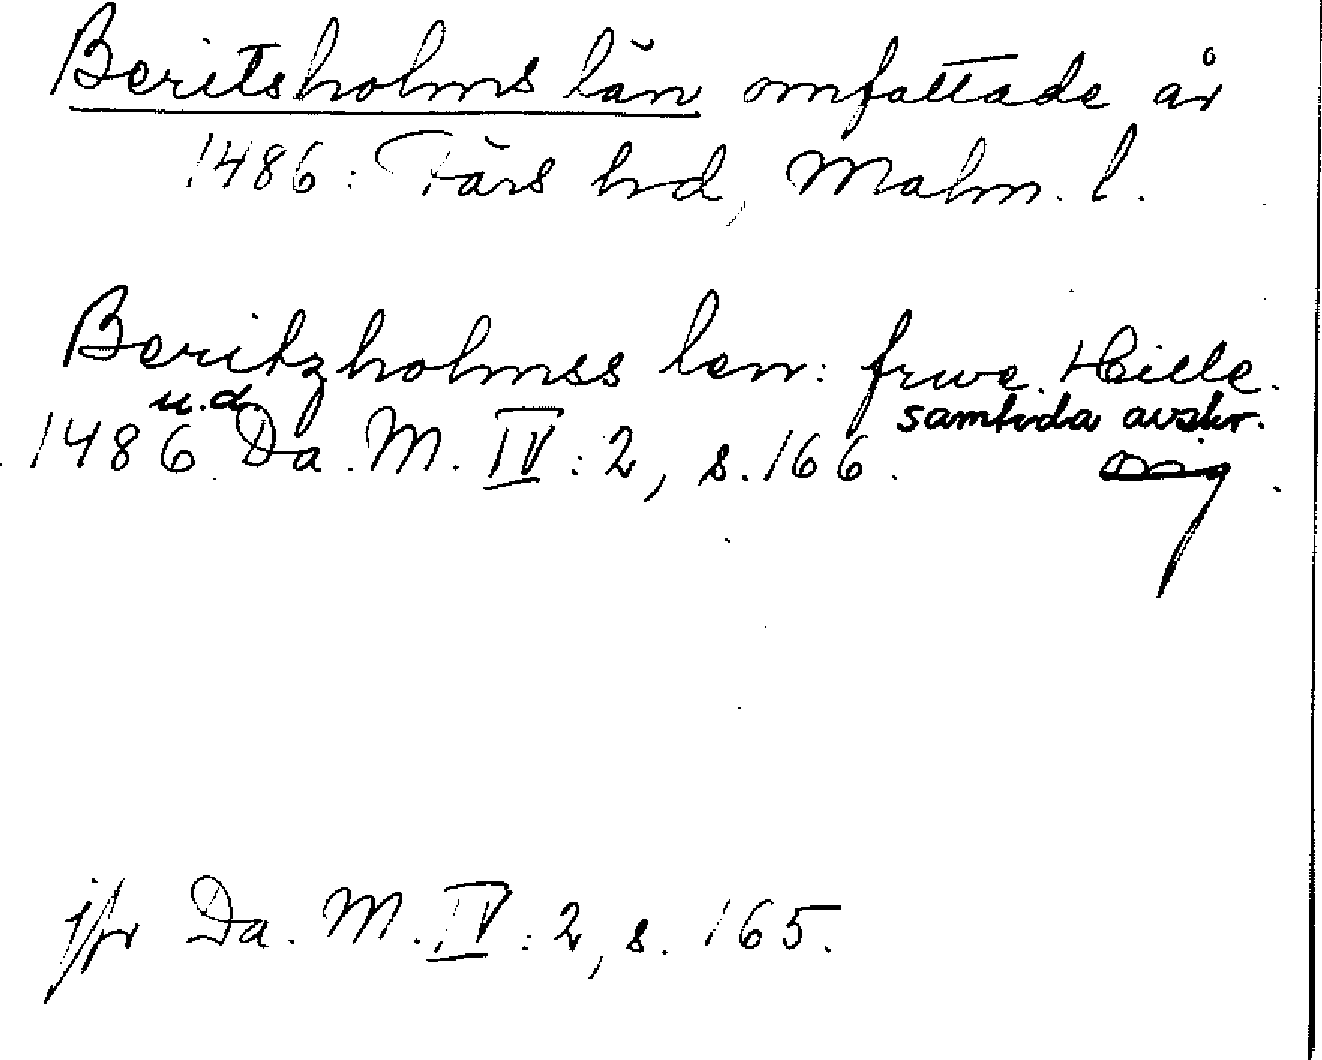 Beritsholms län omfattade år
1486: Färs hrd, Malm. l.
Beritzholmss len: frwe Hille.
u.d. samtida avskr.
1486 Da. M. IV: 2, s. 166.
jfr Da. M. IV: 2, s. 165.